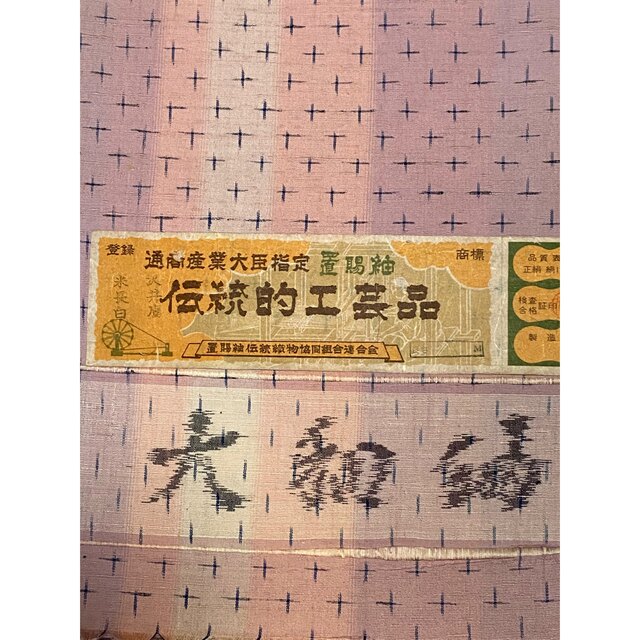 登録
通商産業大臣指定 置賜紬
商標
伝統的工芸品
米 長 白
置賜紬伝統織物協同組合連合会
M
品質表
正絹 絹1
検査
合格
証印
製造